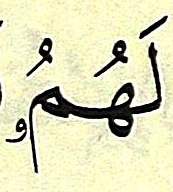 لَهُمُۥ